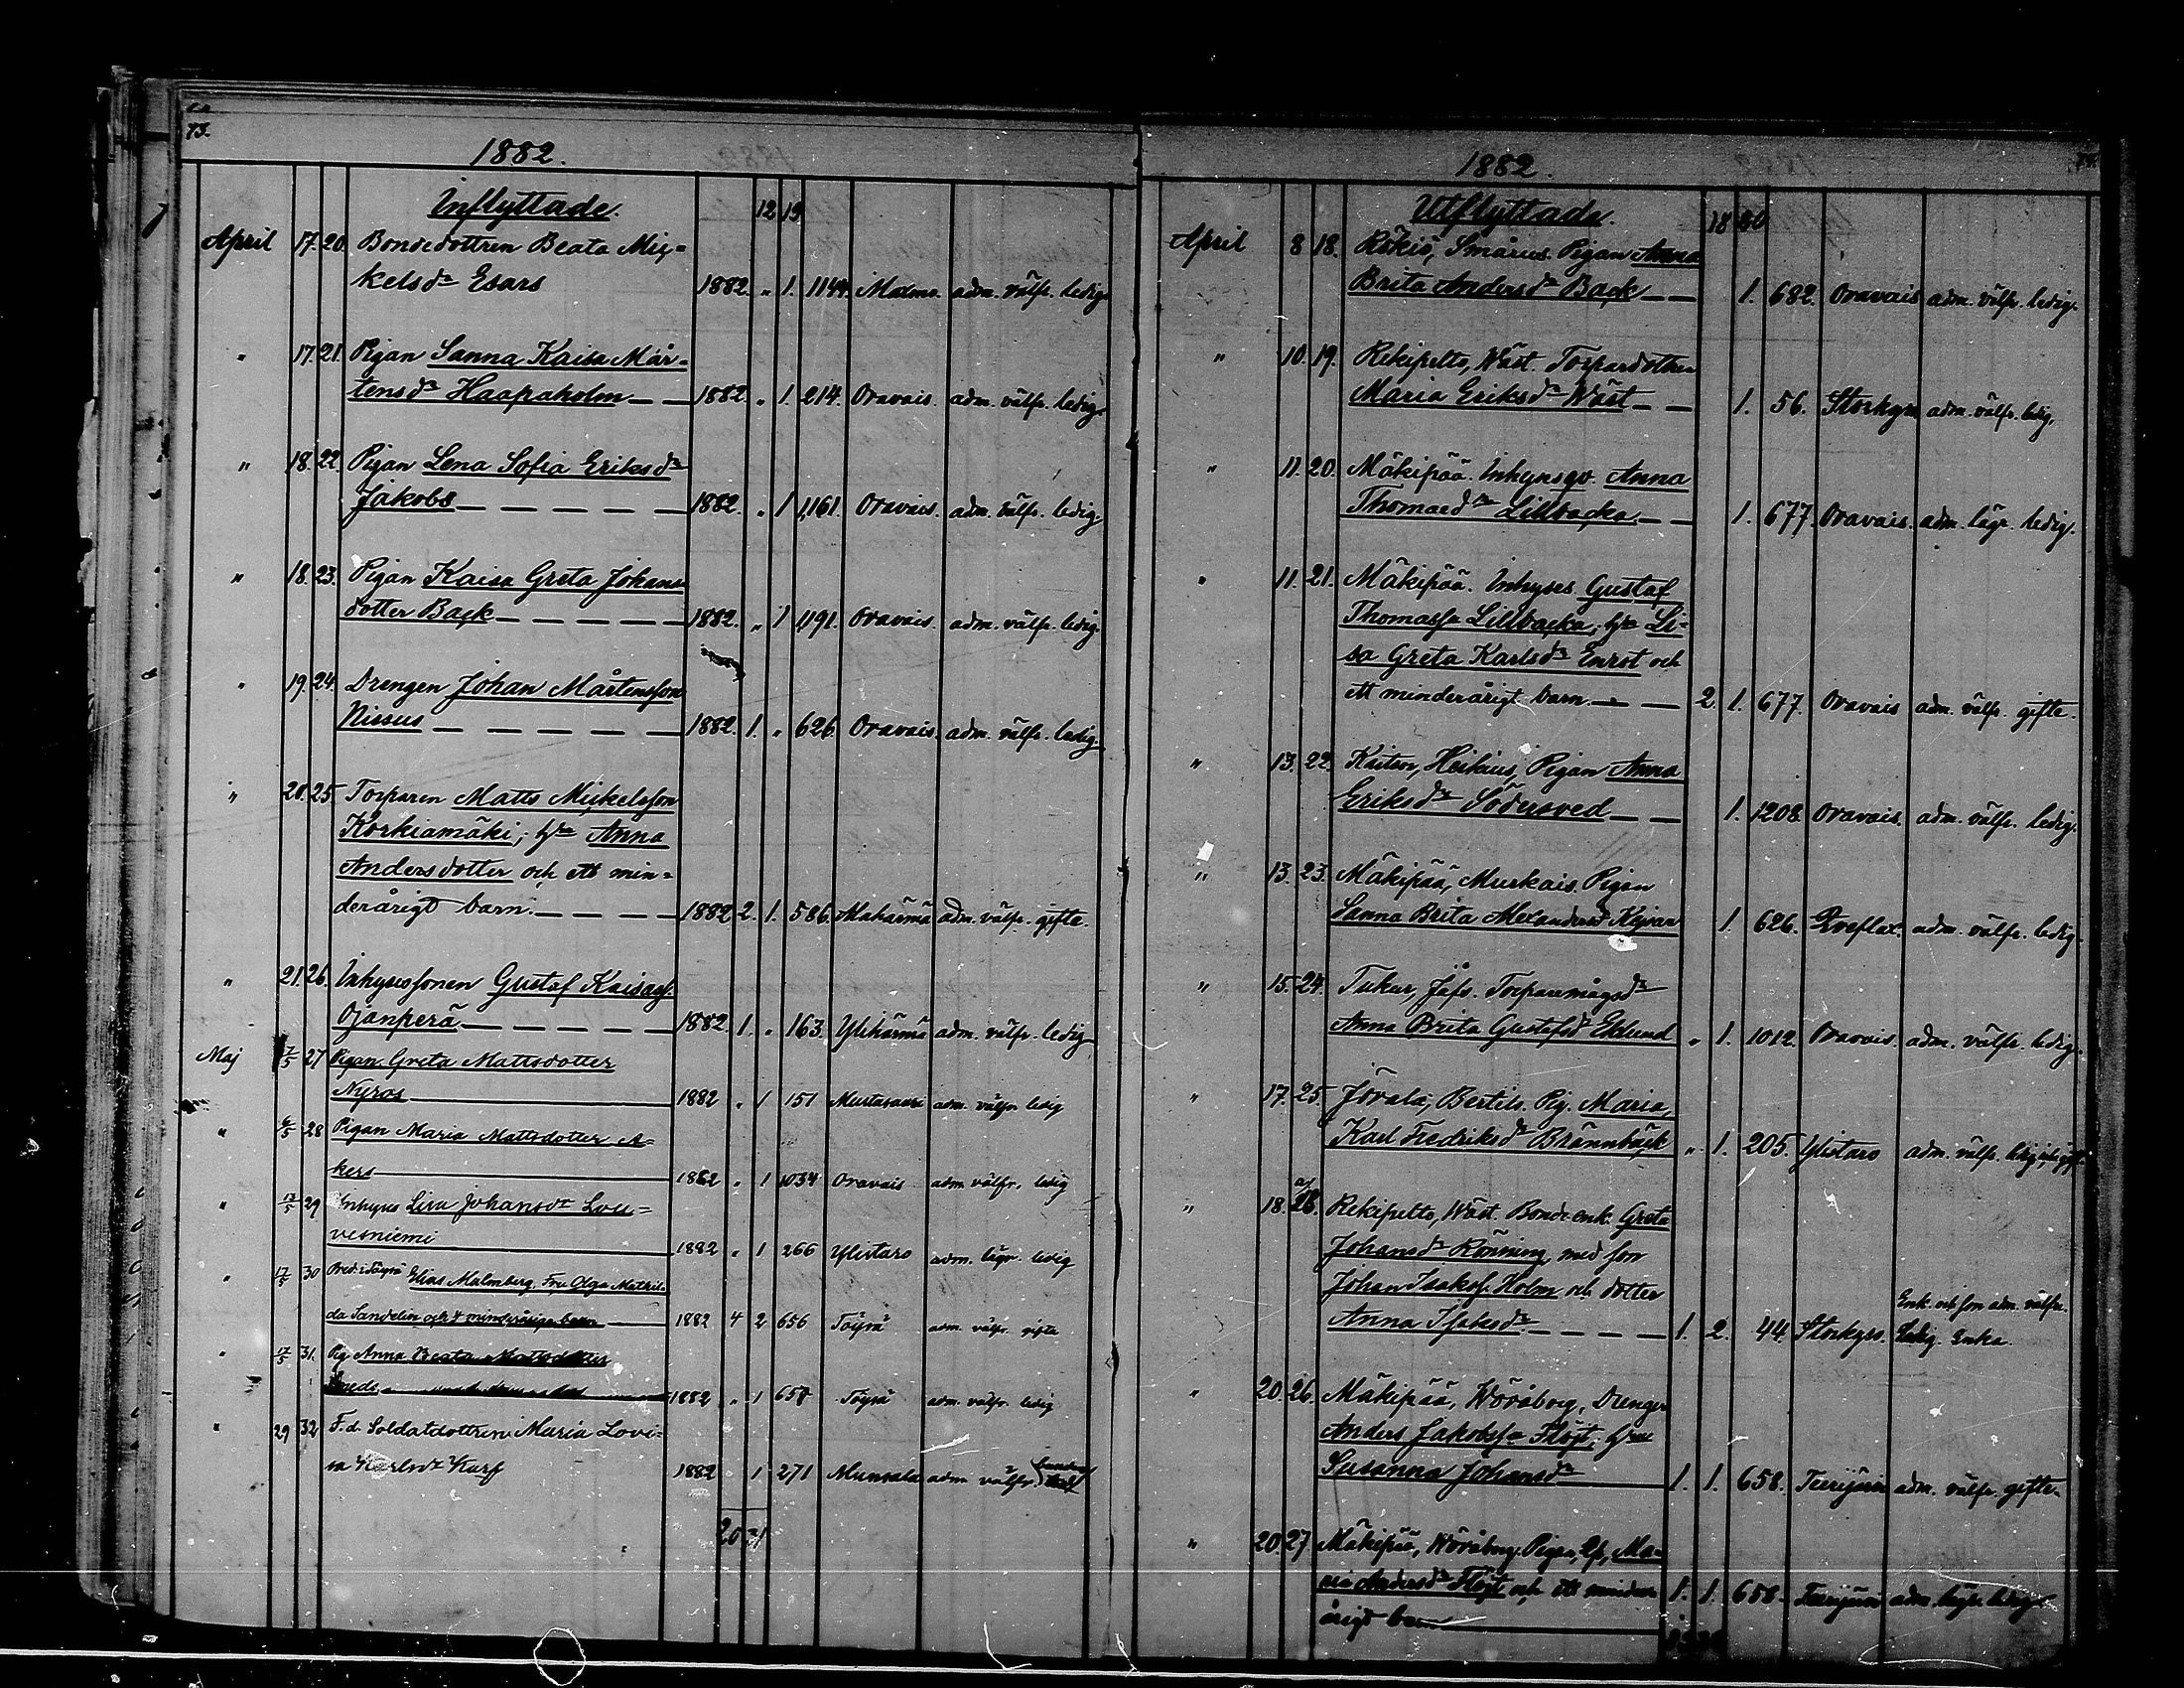 73.
1882.
Inflyttade.
12 19
April 17. 20. Bondedottren Beata Mic-
kelsdr Esars 1882. „ 1. 1144. Malmö. adm. välfr. ledig.
" 17. 21. Pigan Sanna Kaisa Mår-
tensdr Haapaholm — — 1882. „ 1. 214. Oravais. adm. välfr. ledig.
" 18. 22. Pigan Lena Sofia Eriksdr
Jakobs — — — — — — 1882. „ 1 1,161. Oravais. adm. välfr. ledig.
" 18. 23. Pigan Kaisa Greta Johans
dotter Back — — — — — 1882. „ 1 1,191. Oravais. adm. välfr. ledig.
" 19. 24. Drengen Johan Mårtensson
Nissus — — — — — — 1882. 1. „ 626. Oravais. adm. välfr. ledig.
" 20. 25. Torparen Matts Mickelsson
Korkiamäki; h:u Anna
Andersdotter och ett min-
derårigt barn. — — — — 1882 2. 1. 586. Alahärmä adm. välfr. gifte.
" 21. 26. Inhysessonen Gustaf Kaisas.
Ojanperä — — — — — 1882. 1. „ 163. Ylihärmä adm. välfr. ledig
Maj 7/5 27 Pigan Greta Mattsdotter
Nyros 1882 „ 1 151 Mustasaari adm. välfr. ledig
" 6/5 28 Pigan Maria Mattsdotter A-
kers 1882 „ 1 1034 Oravais adm välfr. ledig
" 13/5 29 Inhyses Lisa Johansdr Lou-
vesniemi 1882 „ 1 266 Ylistaro adm. lägr. ledig
" 17/5 30 Pred. i Töysä Elias Malmberg, Fru Olga Mathil-
da Sandelin och 4 minderåriga barn 1882 4 2 656 Töysä adm. välfr. gifta
" 17/5 31. Pig Anna Beata Mattsdotter
1882 „ 1 658 Töysä adm. välfr. ledig
" 29 32 F. d. Soldatdottren Maria Lovi-
sa Karlsdr Kurf 1882 1 271 Munsala adm välfr.
20 21
1882.
Utflyttade.
18 30
April 8 18. Rökiö, Smårus. Pigan Anna
Brita Andersdr Back — — 1. 682. Oravais adm. välfr. ledig.
" 10. 19. Rekipelto, Wäst. Torpardottren
Maria Eriksdr Wäst — — 1. 56. Storkyro adm. välfr. ledig.
" 11. 20. Mäkipää. Inhysesqv. Anna
Thomaedr Lillbacka. — — 1. 677. Oravais. adm. lägr. ledig.
" 11. 21. Mäkipää. Inhyses Gustaf
Thomass. Lillbacka; h:u Li-
sa Greta Karlsdr Enrot och
ett minderårigt barn. — — 2. 1. 677. Oravais adm. välfr. gifte.
" 13. 22. Kaitsor, Heikius, Pigan Anna
Eriksdr Södersved — — 1. 1208. Oravais. adm. välfr. ledig.
" 13. 23. Mäkipää, Murkais. Pigan
Sanna Brita Alexandersd. 1 626. Qveflax. adm. välfr. ledig.
" 15. 24. Tukur, Jåfs. Torparemågsdr
Anna Brita Gustafsd Edlund „ 1. 1012. Oravais. adm. välfr. ledig.
" 17. 25. Jörala, Bertils. Pig. Maria
Karl Fredriksdr Brännbäck „ 1. 205. Ylistaro adm. välfr. ledig
" 18. Rekipelto, Wäst. Bonde enk. Greta
Johansdr Rönning, med son
Johan Isaks. Holm och dotter
Anna Isaksdr — — — — 1. 2. 44. Storkyro. Enk. och son adm. välfr.
Ledig. Enka.
" 20. 26. Mäkipää, Wöråborg, Drengen
Anders Jakobss. Flöjt; h:u
Susanna Johansdr 1. 1. 658. adm. välfr. gifte.
" 20. 27 Mäkipää, Wöråborg. Pigan, Ma-
ria Andersdr Flöjt och ett minder-
årigt barn 1. 1. 658. adm. lägr. ledig